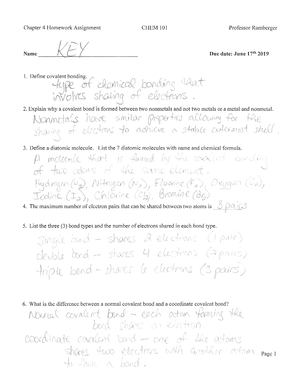 Chapter 4 Homework Assignment CHEM 101 Professor Ramberger
Name KEY Due date: June 17th 2019
1. Define covalent bonding.
type of chemical bonding that
involves sharing of electrons.
2. Explain why a covalent bond is formed between two nonmetals and not two metals or a metal and nonmetal.
Nonmetals have similar properties allowing for the
sharing of electrons to achieve a stable outermost shell.
3. Define a diatomic molecule. List the 7 diatomic molecules with name and chemical formula.
A molecule that is formed by the covalent bonding
of two atoms of the same element.
Hydrogen (H2), Nitrogen (N2), Fluorine (F2), Oxygen (O2),
Iodine (I2), Chlorine (Cl2), Bromine (Br2)
4. The maximum number of electron pairs that can be shared between two atoms is 3 pairs
5. List the three (3) bond types and the number of electrons shared in each bond type.
Single bond - shares 2 electrons (1 pair)
double bond - shares 4 electrons (2 pairs)
triple bond - shares 6 electrons (3 pairs)
6. What is the difference between a normal covalent bond and a coordinate covalent bond?
Normal covalent bond - each atom forming the
bond shares an electron
coordinate covalent bond - one of the atoms
shares two electrons with another atom
to form a bond.
Page 1